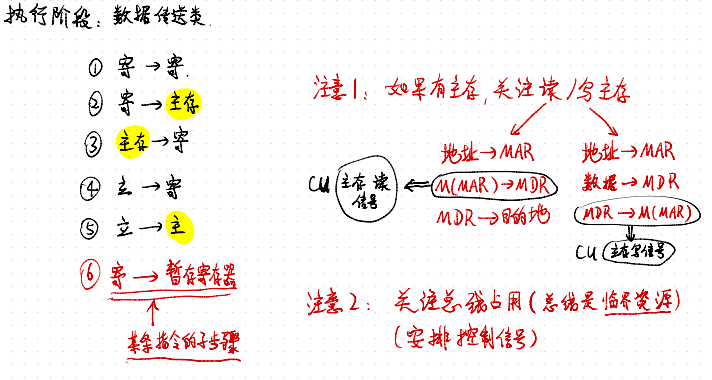 执行阶段：数据传送类.
① 寄→寄.
② 寄→主存
③ 主存→寄
④ 立→寄
⑤ 立→主
⑥ 寄→暂存寄存器
某条指令的子步骤
注意1：如果有主存，关注读/写主存
地址→MAR
M(MAR)→MDR
MDR→目的地
CU 主存读信号
地址→MAR
数据→MDR
MDR→M(MAR)
CU 主存写信号
注意2：关注总线占用(总线是临界资源)
(安排控制信号)